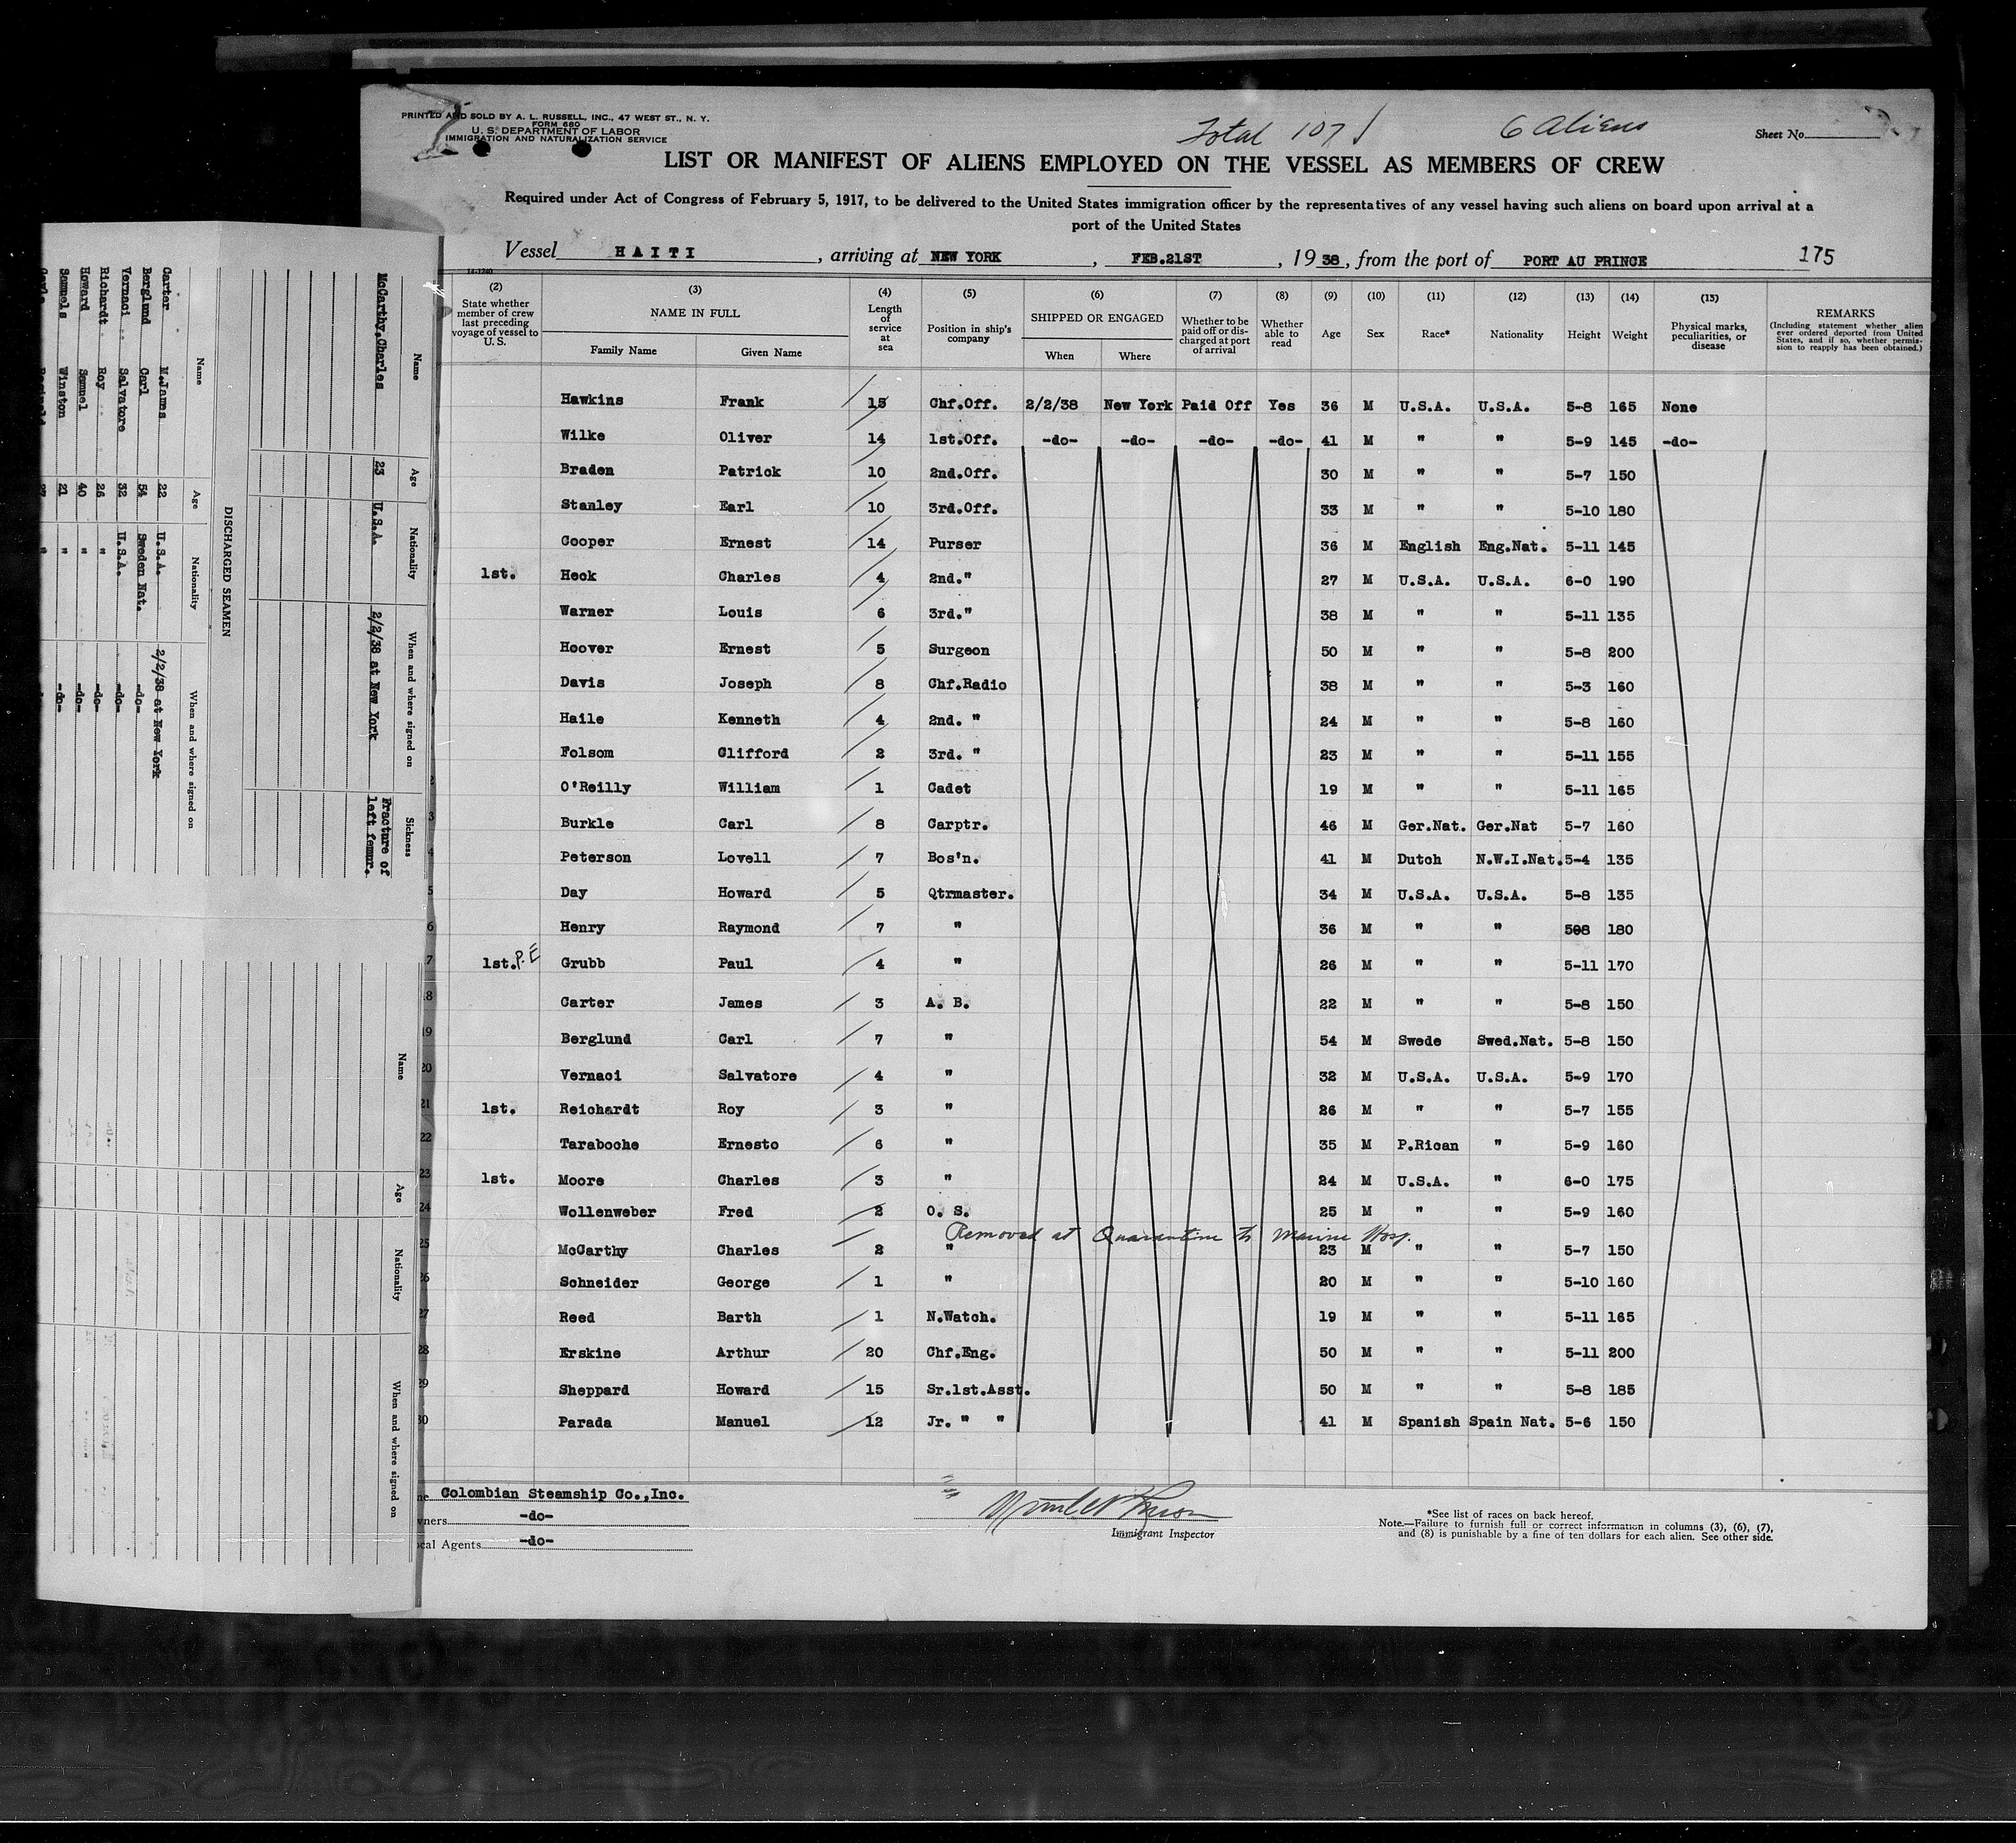 PRINTED AND SOLD BY A. L. RUSSELL, INC., 47 WEST ST., N. Y.
FORM 680
U. S. DEPARTMENT OF LABOR
IMMIGRATION AND NATURALIZATION SERVICE
Total 107
6 Aliens
Sheet No.
LIST OR MANIFEST OF ALIENS EMPLOYED ON THE VESSEL AS MEMBERS OF CREW
Required under Act of Congress of February 5, 1917, to be delivered to the United States immigration officer by the representatives of any vessel having such aliens on board upon arrival at a
port of the United States
Vessel HAITI, arriving at NEW YORK, FEB.21ST, 1938, from the port of PORT AU PRINCE 175
14-1240
(2) State whether member of crew last preceding voyage of vessel to U. S.
(3) NAME IN FULL
Family Name Given Name
(4) Length of service at sea
(5) Position in ship's company
(6) SHIPPED OR ENGAGED
When Where
(7) Whether to be paid off or discharged at port of arrival
(8) Whether able to read
(9) Age
(10) Sex
(11) Race*
(12) Nationality
(13) Height
(14) Weight
(15) Physical marks, peculiarities, or disease
REMARKS
(Including statement whether alien ever ordered deported from United States, and if so, whether permission to reapply has been obtained.)
Hawkins Frank 15 Chf.Off. 2/2/38 New York Paid Off Yes 36 M U.S.A. U.S.A. 5-8 165 None
Wilke Oliver 14 1st.Off. -do- -do- -do- -do- 41 M " " 5-9 145 -do-
Braden Patrick 10 2nd.Off. 30 M " " 5-7 150
Stanley Earl 10 3rd.Off. 33 M " " 5-10 180
Cooper Ernest 14 Purser 36 M English Eng.Nat. 5-11 145
1st. Heck Charles 4 2nd." 27 M U.S.A. U.S.A. 6-0 190
Warner Louis 6 3rd." 38 M " " 5-11 135
Hoover Ernest 5 Surgeon 50 M " " 5-8 200
Davis Joseph 8 Chf.Radio 38 M " " 5-3 160
Haile Kenneth 4 2nd. " 24 M " " 5-8 160
Folsom Clifford 2 3rd. " 23 M " " 5-11 155
O'Reilly William 1 Cadet 19 M " " 5-11 165
3 Burkle Carl 8 Carptr. 46 M Ger.Nat. Ger.Nat 5-7 160
4 Peterson Lovell 7 Bos'n. 41 M Dutch N.W.I.Nat. 5-4 135
5 Day Howard 5 Qtrmaster. 34 M U.S.A. U.S.A. 5-8 135
6 Henry Raymond 7 " 36 M " " 508 180
7 1st. P.E Grubb Paul 4 " 26 M " " 5-11 170
18 Carter James 3 A. B. 22 M " " 5-8 150
19 Berglund Carl 7 " 54 M Swede Swed.Nat. 5-8 150
20 Vernaci Salvatore 4 " 32 M U.S.A. U.S.A. 5-9 170
21 1st. Reichardt Roy 3 " 26 M " " 5-7 155
22 Taraboche Ernesto 6 " 35 M P.Rican " 5-9 160
23 1st. Moore Charles 3 " 24 M U.S.A. " 6-0 175
24 Wollenweber Fred 2 O. S. 25 M " " 5-9 160
Removed at Quarantine to Marine Hosp.
25 McCarthy Charles 2 " 23 M " " 5-7 150
26 Schneider George 1 " 20 M " " 5-10 160
27 Reed Barth 1 N.Watch. 19 M " " 5-11 165
28 Erskine Arthur 20 Chf.Eng. 50 M " " 5-11 200
29 Sheppard Howard 15 Sr.1st.Asst. 50 M " " 5-8 185
30 Parada Manuel 12 Jr. " " 41 M Spanish Spain Nat. 5-6 150
Colombian Steamship Co.,Inc.
-do-
Agents -do-
Immigrant Inspector
*See list of races on back hereof.
Note.—Failure to furnish full or correct information in columns (3), (6), (7),
and (8) is punishable by a fine of ten dollars for each alien. See other side.
Name Age Nationality When and where signed on Sickness
McCarthy,Charles 23 U.S.A. 2/2/38 at New York Fracture of left femur.
DISCHARGED SEAMEN
Name Age Nationality When and where signed on
Carter M.James 22 U.S.A. 2/2/38 at New York
Berglund Carl 54 Sweden Nat. -do-
Vernaci Salvatore 32 U.S.A. -do-
Richardt Roy 26 " -do-
Howard Samuel 40 " -do-
Sammels Winston 21 " -do-
Name Age Nationality When and where signed on